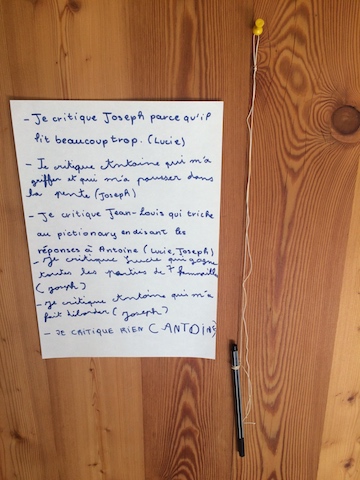 - Je critique Joseph parce qu'il
lit beaucoup trop. (Lucie)
- Je critique Antoine qui m'a
griffer et qui m'a pousser dans
la pente (Joseph)
- Je critique Jean-Louis qui triche
au pictionary en disant les
réponses à Antoine (Lucie, Joseph)
- Je critique Lucie qui gagne
toutes les parties de 7 famille
(Joseph)
- Je critique Antoine qui m'a
fait (Joseph)
- JE CRITIQUE RIEN (ANTOINE)